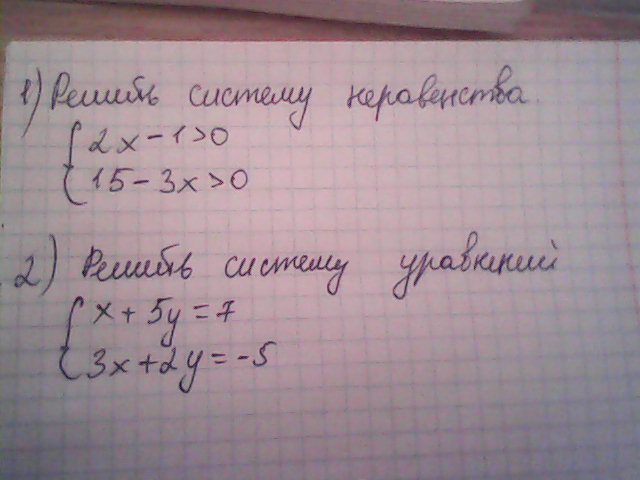 1) Решить систему неравенства.
2x - 1 > 0
15 - 3x > 0
2) Решить систему уравнений
x + 5y = 7
3x + 2y = -5